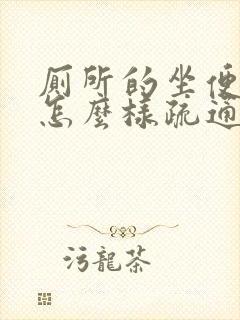 厕所的坐便
怎麼樣疏通
污龍茶